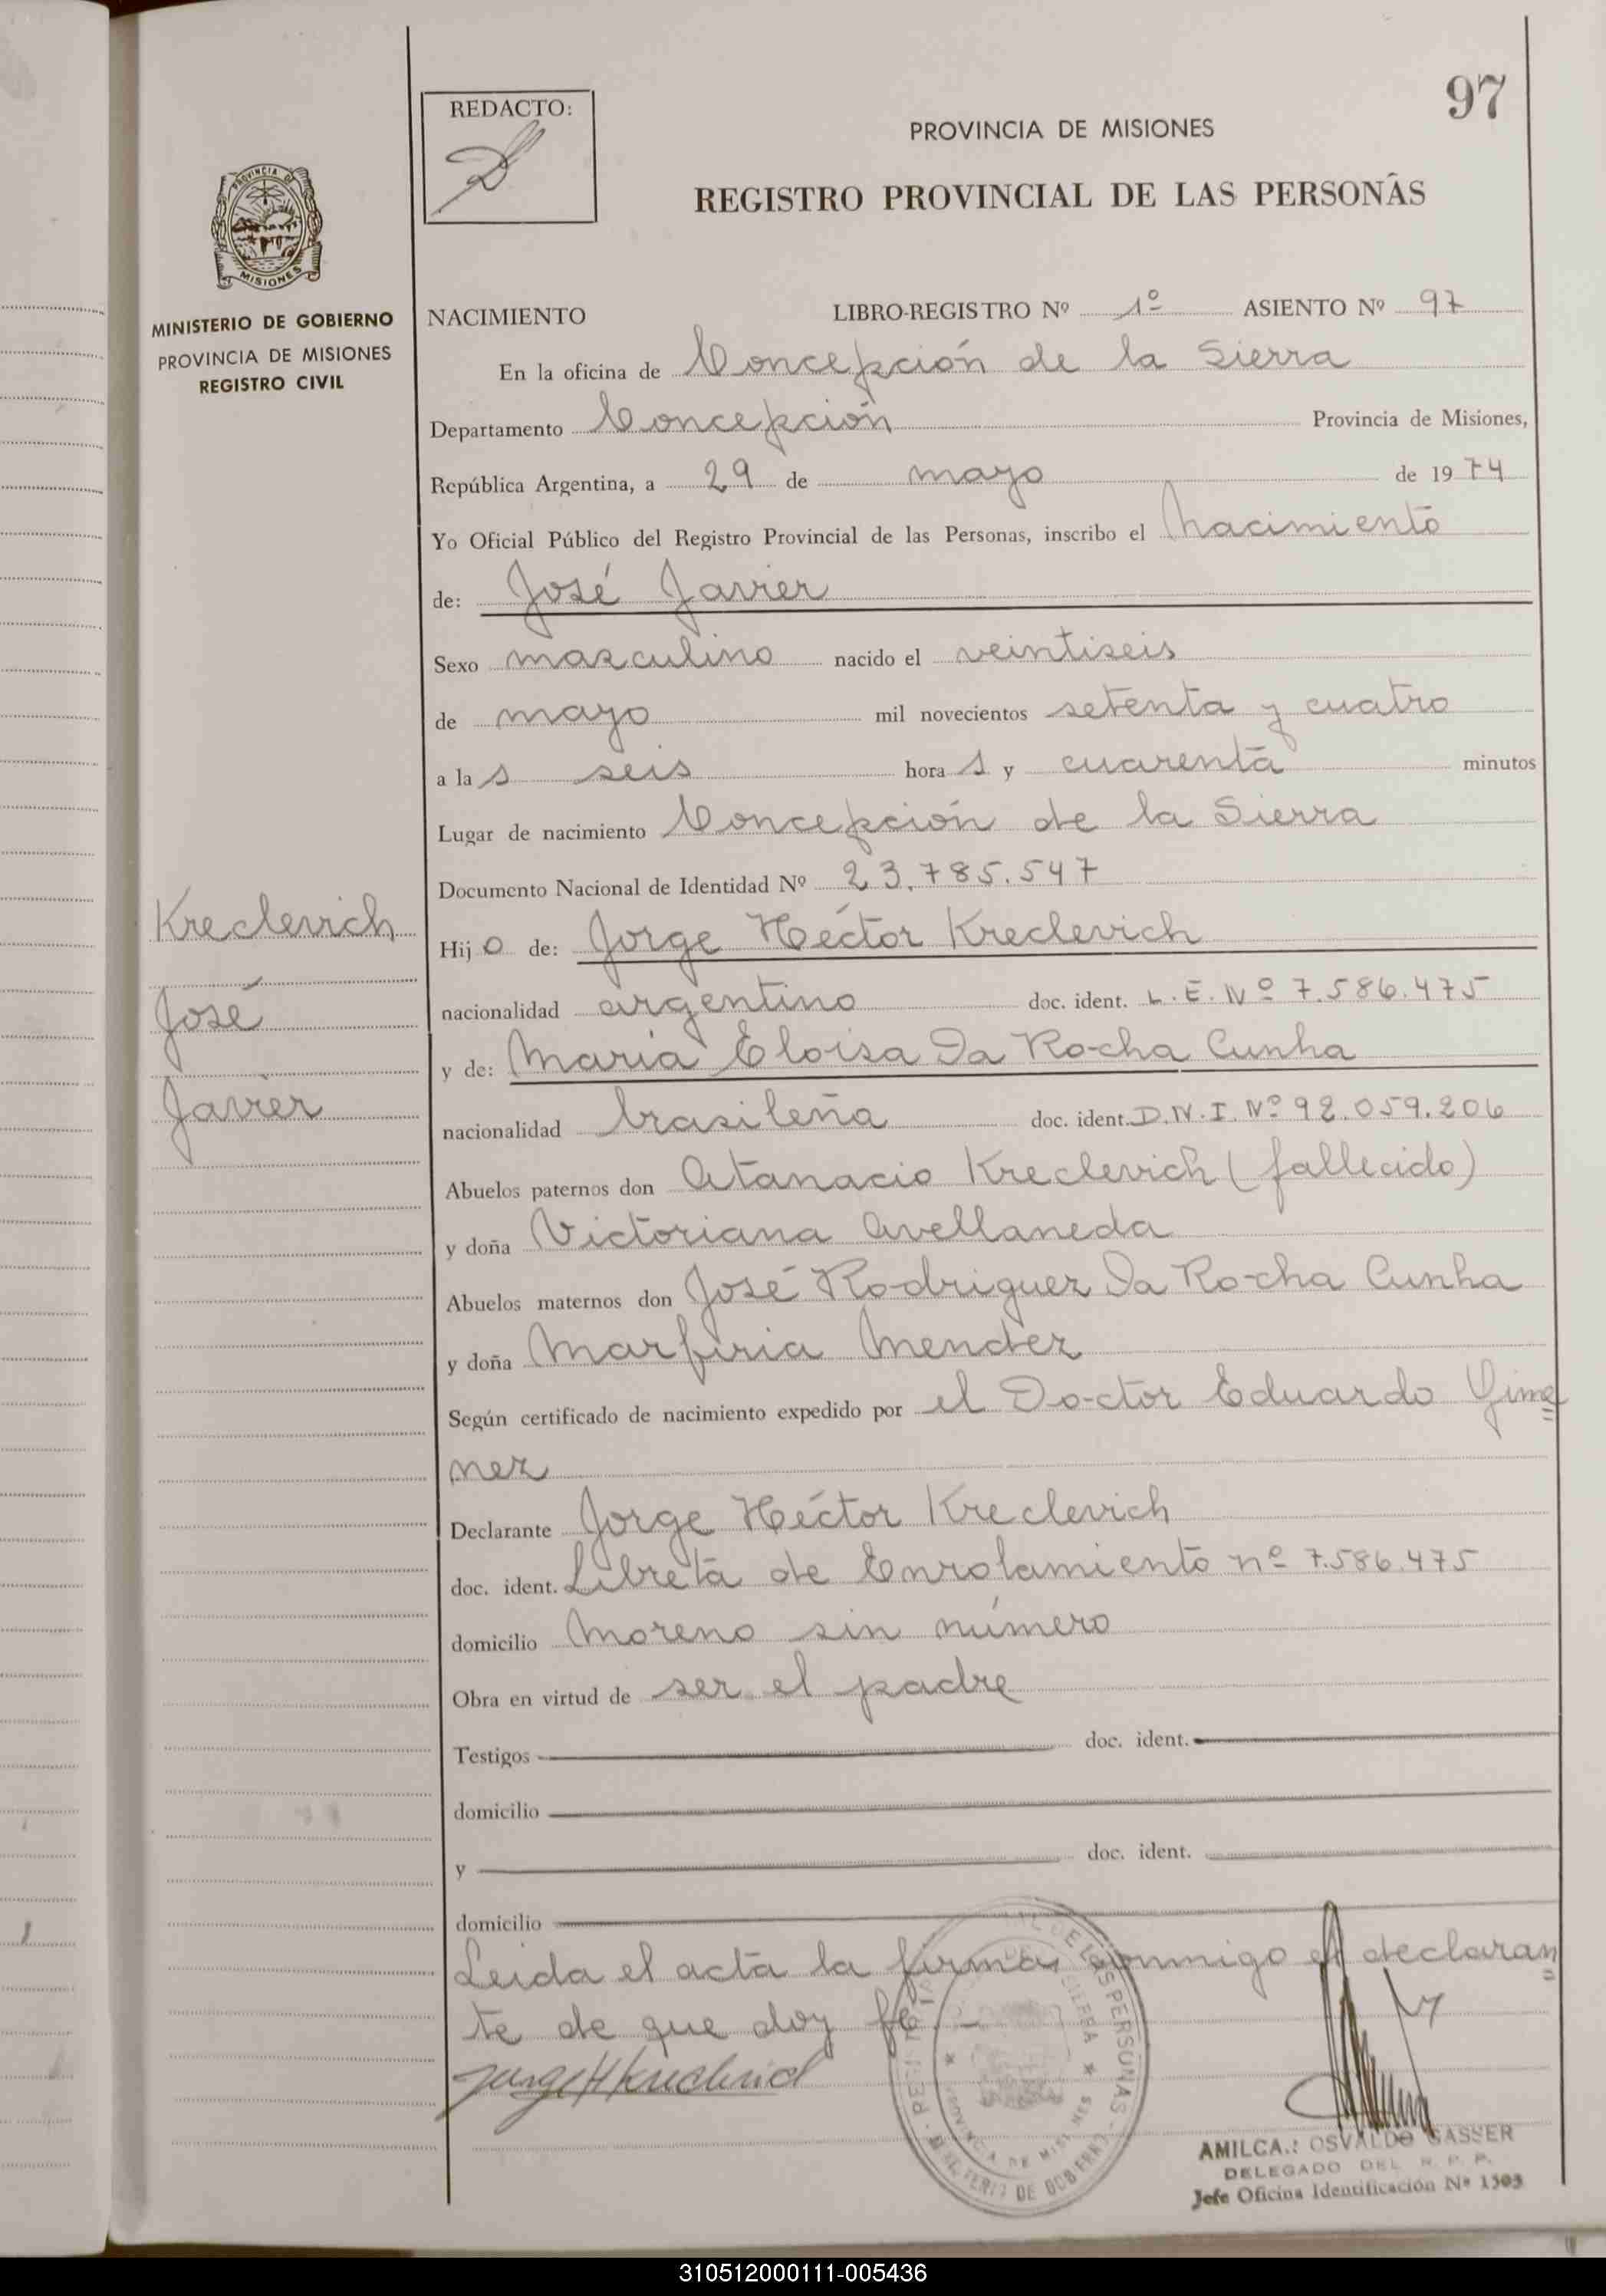 97
REDACTO:
PROVINCIA DE MISIONES
REGISTRO PROVINCIAL DE LAS PERSONAS
PROVINCIA DE
MISIONES
MINISTERIO DE GOBIERNO
PROVINCIA DE MISIONES
REGISTRO CIVIL
NACIMIENTO LIBRO-REGISTRO Nº 1º ASIENTO Nº 97
En la oficina de Concepción de la Sierra
Departamento Concepción Provincia de Misiones,
República Argentina, a 29 de mayo de 1974
Yo Oficial Público del Registro Provincial de las Personas, inscribo el nacimiento
de: José Javier
Sexo masculino nacido el veintiseis
de mayo mil novecientos setenta y cuatro
a las seis horas y cuarenta minutos
Lugar de nacimiento Concepción de la Sierra
Documento Nacional de Identidad Nº 23.785.547
Kreclevich
José
Javier
Hijo de: Jorge Héctor Kreclevich
nacionalidad argentino doc. ident. L.E. Nº 7.586.475
y de: Maria Eloisa Da Rocha Cunha
nacionalidad brasileña doc. ident. D.N.I. Nº 92.059.206
Abuelos paternos don Atanacio Kreclevich (fallecido)
y doña Victoriana Avellaneda
Abuelos maternos don José Rodriguez Da Rocha Cunha
y doña Marfiria Mendez
Según certificado de nacimiento expedido por el Doctor Eduardo Gime
nez
Declarante Jorge Héctor Kreclevich
doc. ident. Libreta de Enrolamiento nº 7.586.475
domicilio Moreno sin número
Obra en virtud de ser el padre
Testigos doc. ident.
domicilio
y doc. ident.
domicilio
Leida el acta la firma conmigo el declaran
te de que doy fé.-
DE LAS PERSONAS
PROVINCIA DE MISIONES
DE GOBIERNO
AMILCA.: OSVALDO GASSER
DELEGADO DEL R. P. P.
Jefe Oficina Identificación Nº 1505
310512000111-005436